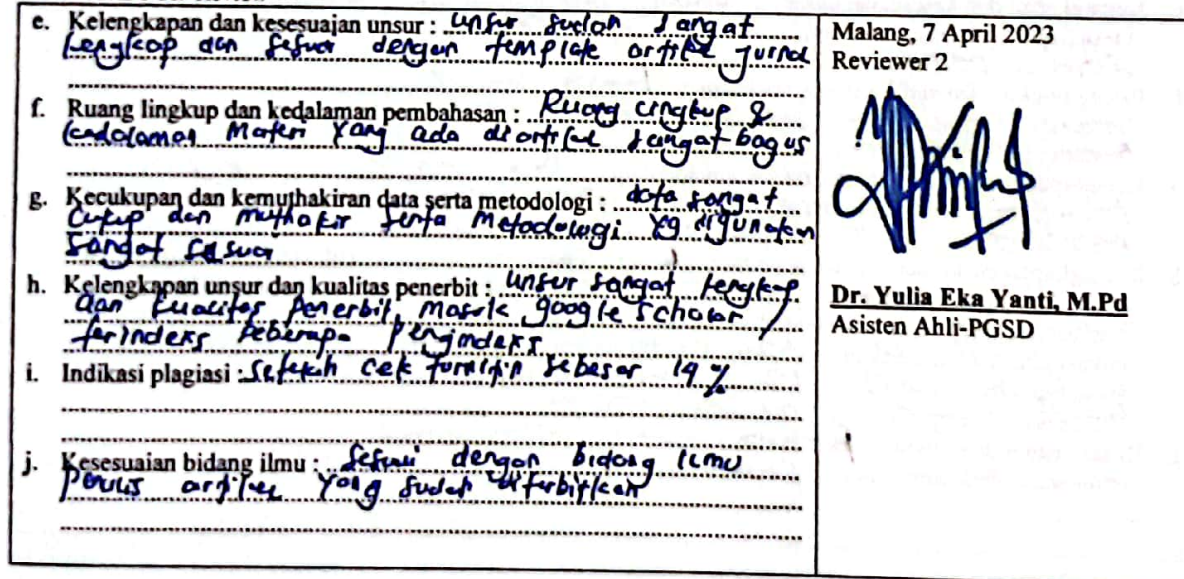 e. Kelengkapan dan kesesuaian unsur : unsur sudah sangat
lengkap dan sesuai dengan template artikel jurnal
f. Ruang lingkup dan kedalaman pembahasan : Ruang lingkup &
kedalaman materi yang ada diartikel sangat bagus
g. Kecukupan dan kemuthakiran data serta metodologi : data sangat
cukup dan muthakir serta metodologi yg digunakan
sangat sesuai
h. Kelengkapan unsur dan kualitas penerbit : unsur sangat lengkap
dan kualitas penerbit masuk google scholar /
terindeks beberapa pengindeks
i. Indikasi plagiasi : setelah cek turnitin sebesar 19 %
j. Kesesuaian bidang ilmu : sesuai dengan bidang ilmu
penulis artikel yang sudah diterbitkan
Malang, 7 April 2023
Reviewer 2
Dr. Yulia Eka Yanti, M.Pd
Asisten Ahli-PGSD